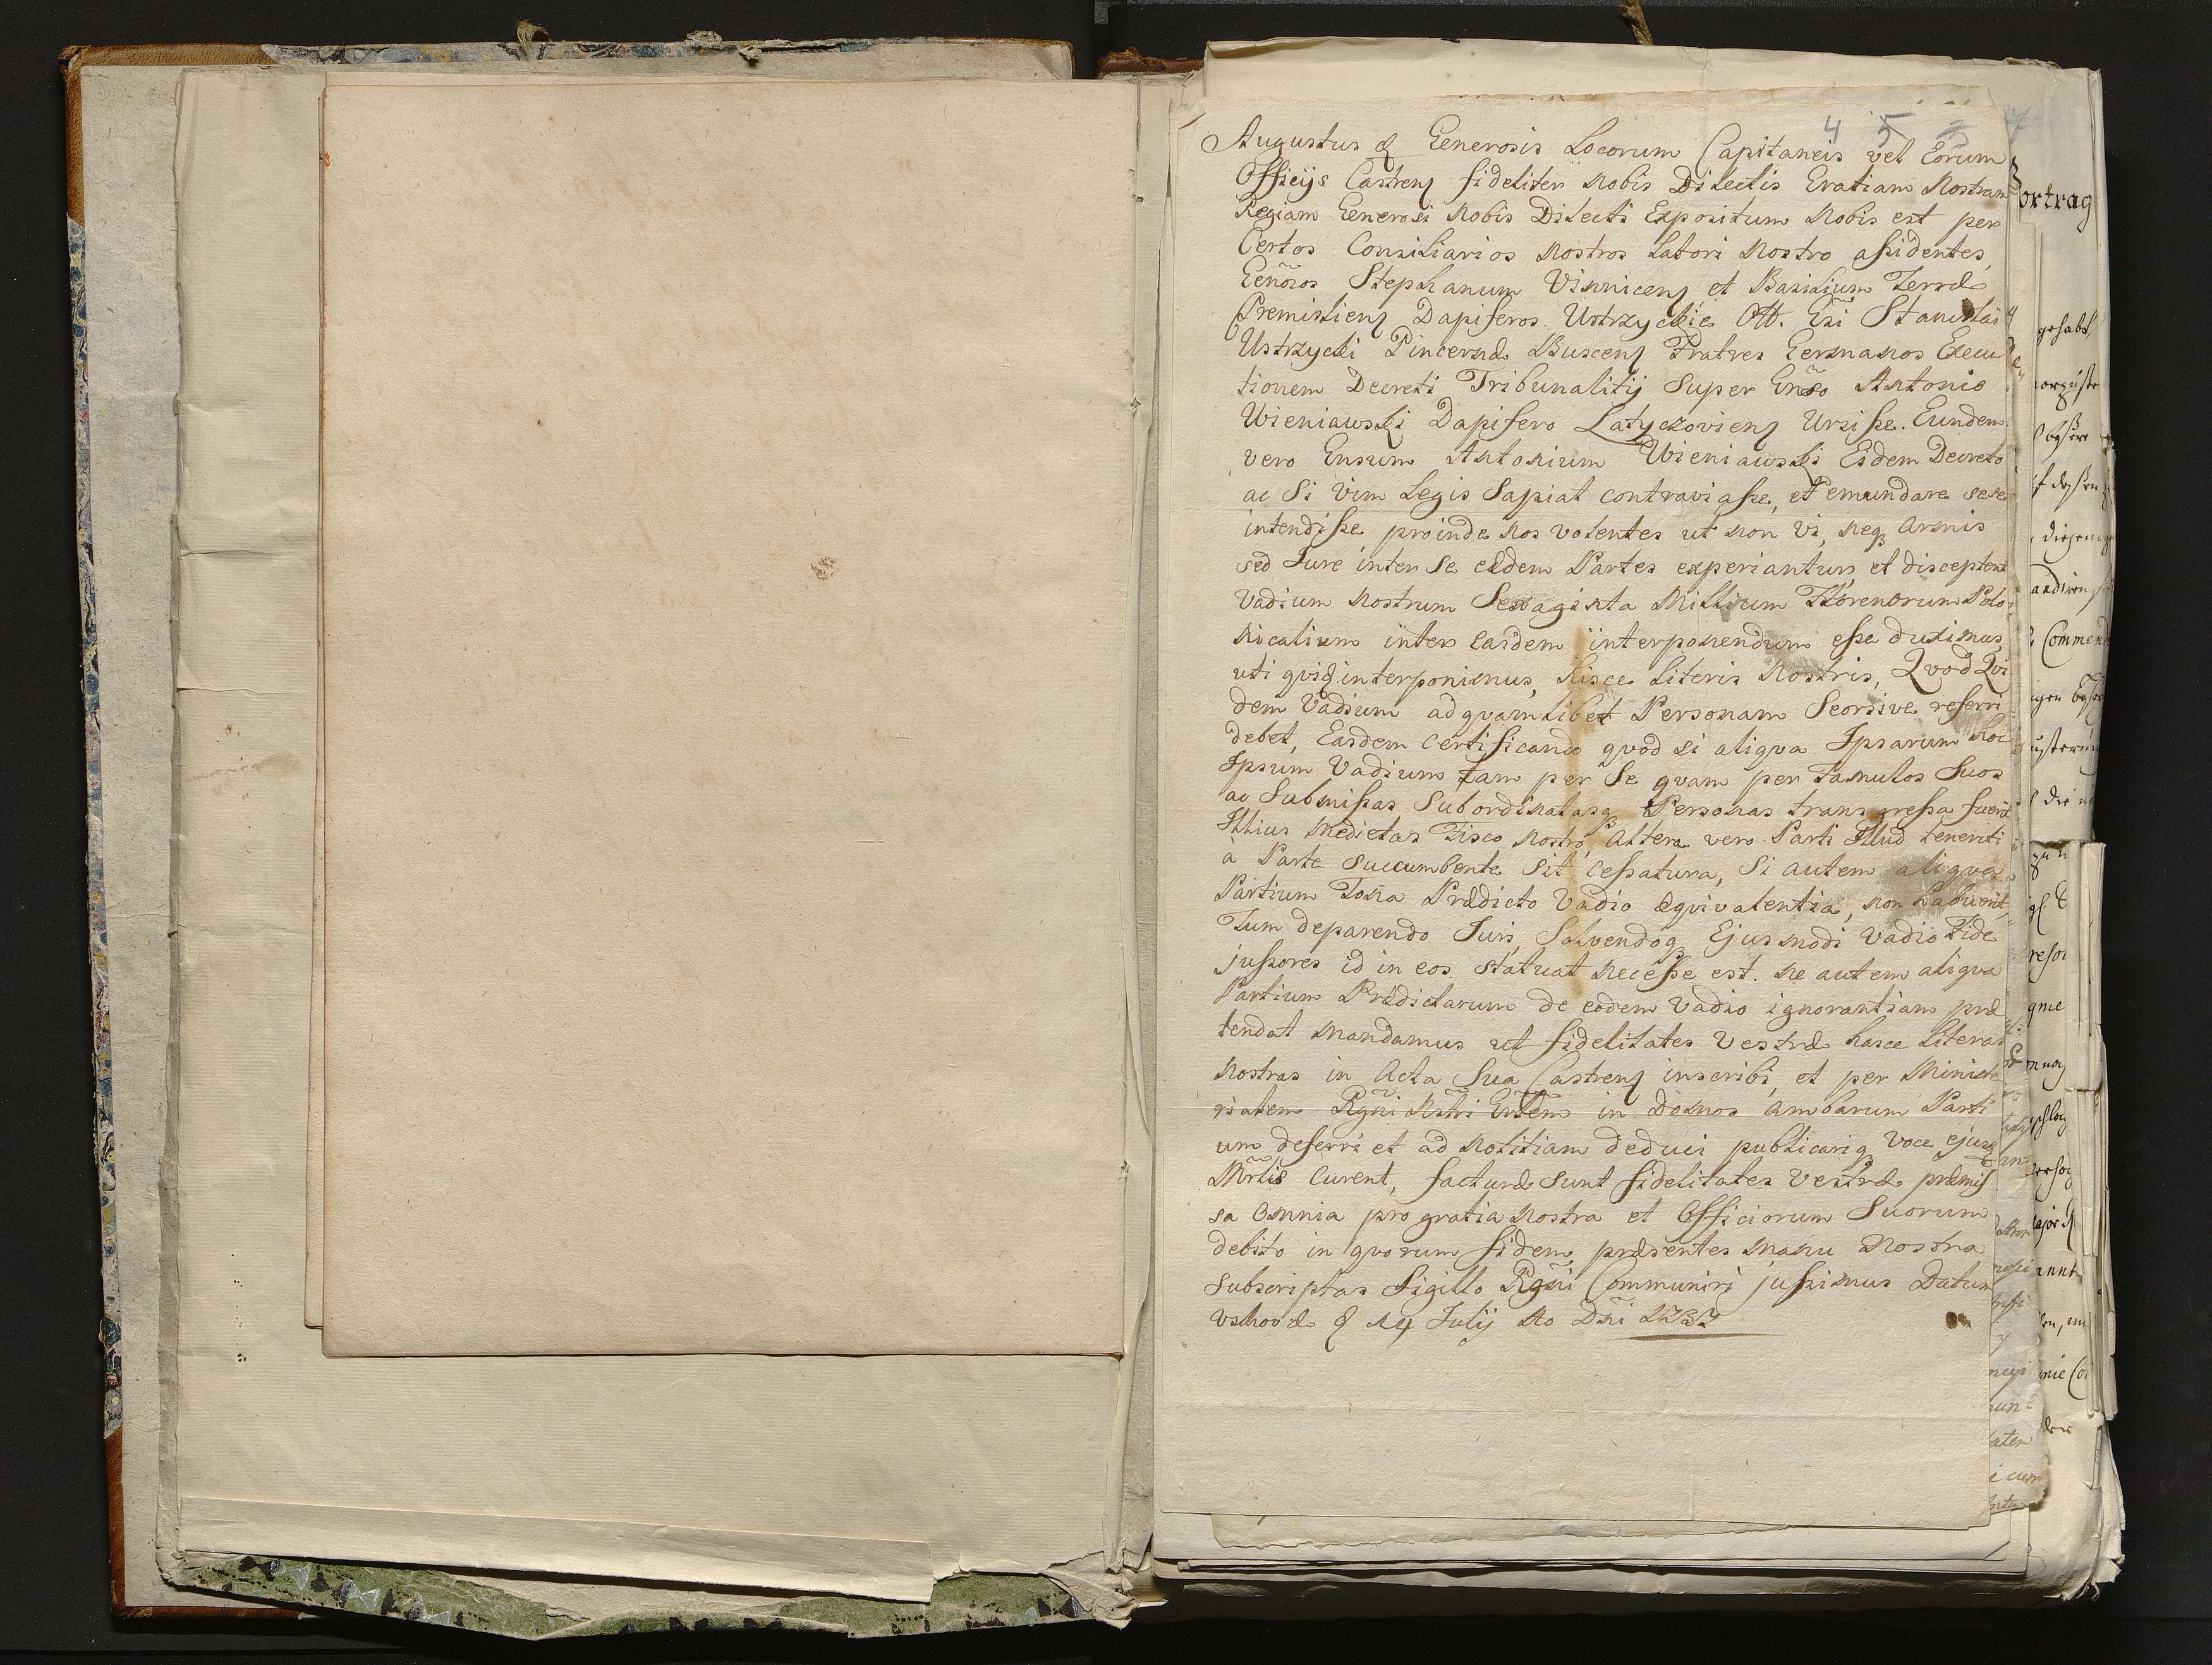 4 5
Augustus & Generosis Locorum Capitaneis vel Eorum
Officijs Castrenȝ fideliter Nobis Dilectis Gratiam Nostram
Regiam Generosi Nobis Dilecti Expositum Nobis est per
Certos Consiliarios Nostros Latori Nostro assidentes,
Genõsos Stephanum Vinnicenȝ et Basilium Terræ
Premislienȝ Dapiferos Ustrzyckie Olł. Gñi Stanislai
Ustrzycki Pincernæ Buscenȝ Fratres Germanos Execu
tionem Decreti Tribunalitij Super Gnõso Antonio
Wieniawski Dapifero Latyczovienȝ Ursisse. Eundem
vero Gnsum Antonium Wieniawski Eidem Decreto
ac Si vim Legis Sapiat contraviasse, et emundare sese
intendisse proinde Nos volentes ut non vi, neqȝ armis
sed Jure inter Se eædem Partes experiantur, et disceptent
Vadium Nostrum Sexaginta Millium Florenorum Polo
nicalium inter easdem interponendum esse duximus,
uti qvidȝ interponimus, hisce Literis Nostris, Qvod Qvi
dem Vadium ad qvamlibet Personam Seorsive referri
debet, Easdem Certificando qvod si aliqva Ipsarum hoc
Ipsum Vadium tam per Se qvam per Famulos Suos
ac Submissas Subordinatasqȝ Personas transgressa fuerit
Illius Medietas Fisco Nostro, Altera vero Parti Illud tenenti
à Parte Succumbente Sit cessatura, Si autem aliqva
Partium Bona Prædicto Vadio æqvivalentia, non habuerit,
Tum deparendo Juri, Solvendoqȝ Ejusmodi Vadio Fide
jussores id in eos statuat necesse est. Ne autem aliqva
Partium Prædictarum de eodem Vadio ignorantiam præ
tendat Mandamus ut fidelitates Vestræ hasce Literas
Nostras in Acta Sua Castrenȝ inscribi, et per Ministe
rialem Rgñi Nstri in Domos Ambarum Parti
um deferri et ad Notitiam deduci publicariqȝ voce ejusȝ
Mrlis Curent, facturæ Sunt fidelitates Vestræ præmis
sa Omnia pro gratia Nostra et Officiorum Suorum
debito in qvorum fidem præsentes Manu Nostra
Subscriptas Sigillo Rgñi Communiri jussimus Datum
Vshovæ & 14 Julij Ao Dñi 1737
ortrag
gehabt,
Commend